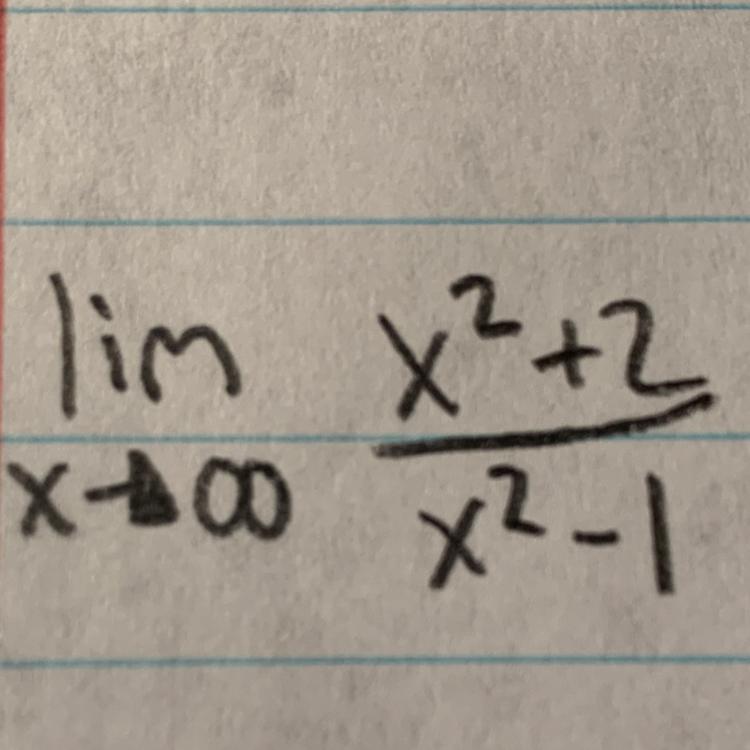 lim x²+2
x→∞ x²-1